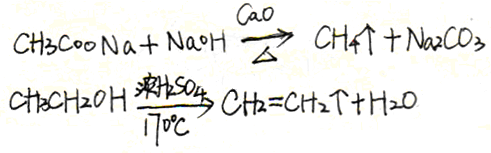 CH3COONa + NaOH CaO △ → CH4↑ + Na2CO3
CH3CH2OH 浓H2SO4 170℃ → CH2=CH2↑ + H2O